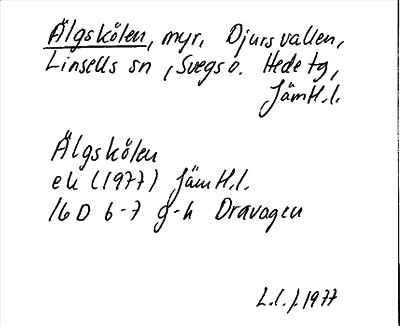 Älgskölen, myr, Djursvallen,
Linsells sn, Svegs o. Hede tg,
Jämtl.l.
Älgskölen
ek (1977) Jämtl.l.
16D 6-7 g-h Dravagen
L.l.f. 1977